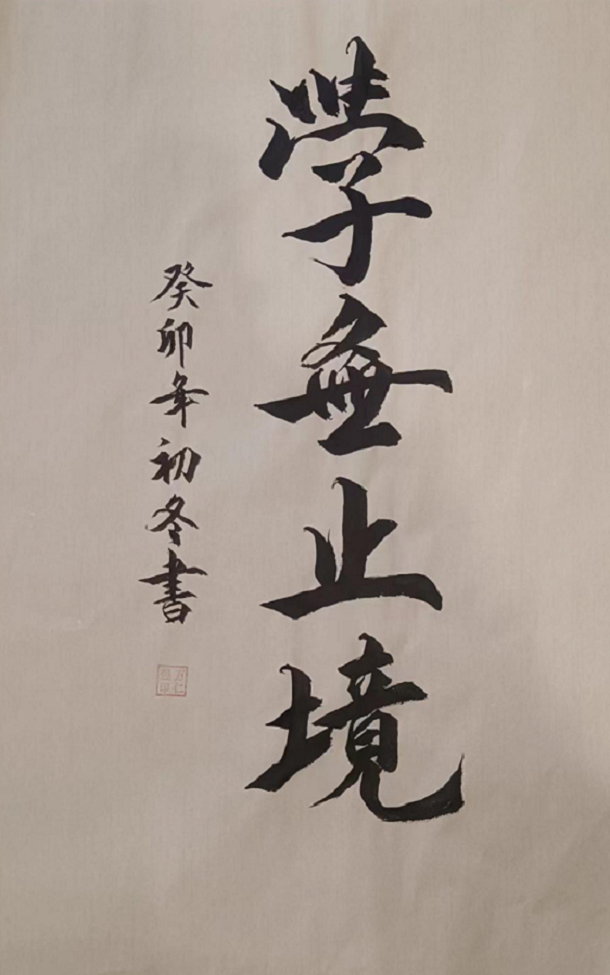 學無止境
癸卯年初冬書